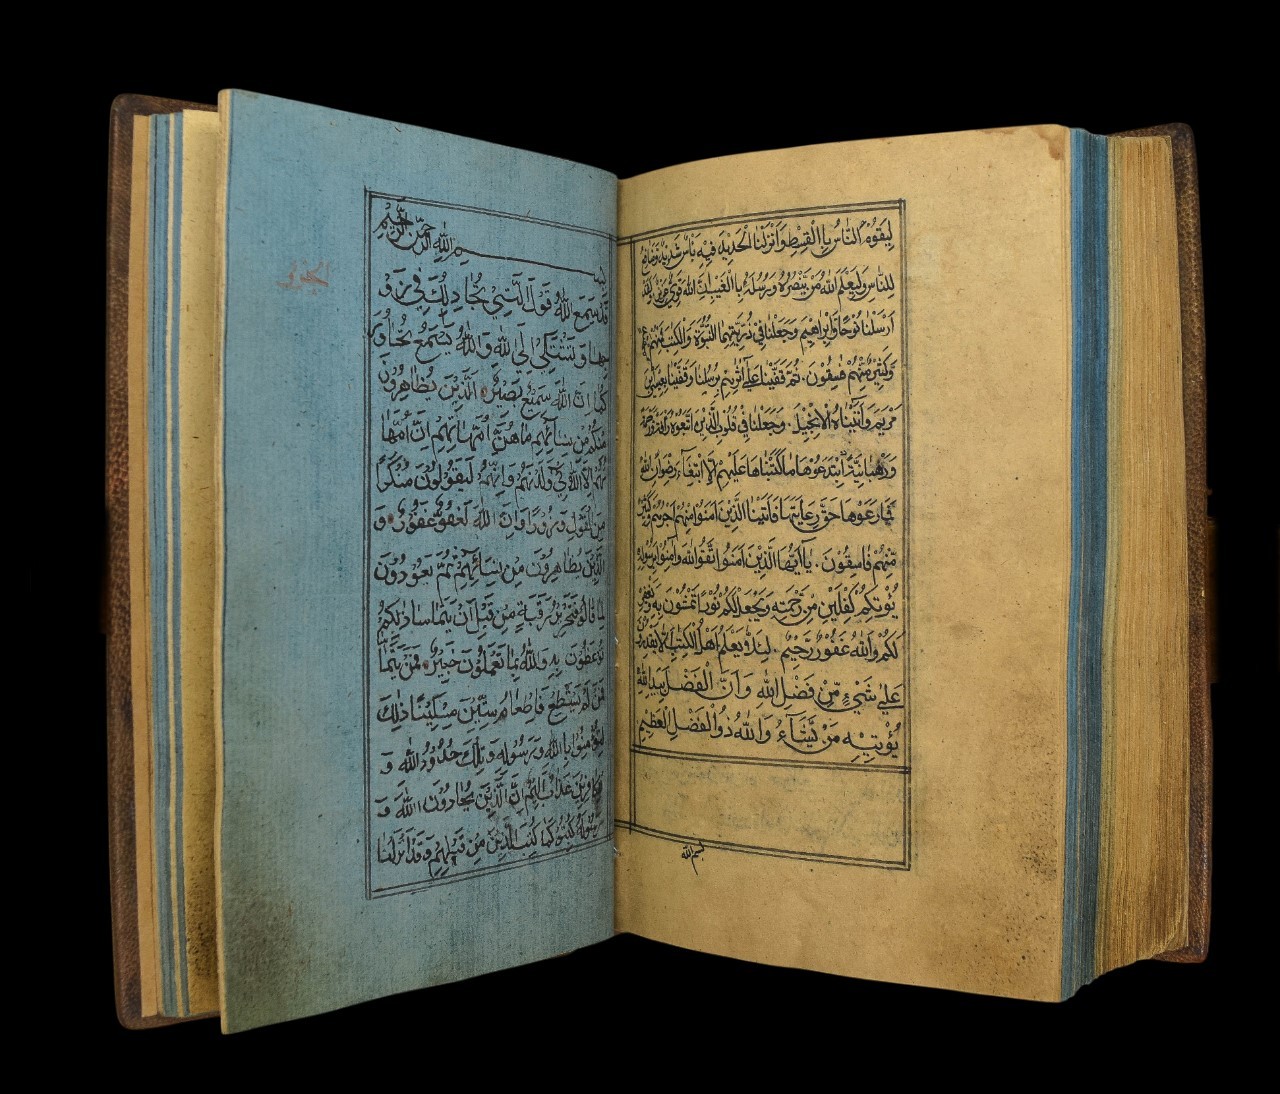 ليَقُوْمَ النَّاسُ بِا الْقِسْطِ وَاَنْزَلْنَا الْحَدِيْدَ فِيْهِ بَاْسٌ شَدِيْدٌ وَمَنَافِعُ
لِلنَّاسِ وَلِيَعْلَمَ اللهُ مَنْ يَّنْصُرُهُ وَرُسُلَهُ بِا الْغَيْبِ اِنَّ اللهَ قَوِىٌّ عَزِيْزٌ وَلَقَدْ
اَرْسَلْنَا نُوْحًا وَاِبْرَاهِيْمَ وَجَعَلْنَا فِيْ ذُرِّيَّتِهِمَا النُّبُوَّةَ وَالْكِتٰبَ فَمِنْهُمْ
وَكَثِيْرٌ مِّنْهُمْ فٰسِقُوْنَ. ثُمَّ قَفَّيْنَا عَلٰى اٰثَارِهِمْ بِرُسُلِنَا وَقَفَّيْنَا بِعِيْسَى ابْنِ
مَرْيَمَ وَاٰتَيْنَاهُ الْاِنْجِيْلَ. وَجَعَلْنَا فِيْ قُلُوْبِ الَّذِيْنَ اتَّبَعُوْهُ رَأْفَةً وَّرَحْمَةً
وَرَهْبَانِيَّةً ابْتَدَعُوْهَا مَا كَتَبْنَاهَا عَلَيْهِمْ اِلَّا ابْتِغَآءَ رِضْوَانِ اللهِ
فَمَا رَعَوْهَا حَقَّ رِعَايَتِهَا فَاٰتَيْنَا الَّذِيْنَ اٰمَنُوْا مِنْهُمْ اَجْرَهُمْ وَكَثِيْرٌ
مِّنْهُمْ فَاسِقُوْنَ. يٰا اَيُّهَا الَّذِيْنَ اٰمَنُوا اتَّقُوا اللهَ وَاٰمِنُوْا بِرَسُوْلِهِ
يُؤْتِكُمْ كِفْلَيْنِ مِنْ رَّحْمَتِهِ وَيَجْعَلْ لَكُمْ نُوْرًا تَمْشُوْنَ بِهِ وَيَغْفِرْ
لَكُمْ وَاللهُ غَفُوْرٌ رَّحِيْمٌ. لِئَلَّا يَعْلَمَ اَهْلُ الْكِتٰبِ اَلَّا يَقْدِرُوْنَ
عَلٰى شَيْءٍ مِّنْ فَضْلِ اللهِ وَاَنَّ الْفَضْلَ بِيَدِ اللهِ
يُؤْتِيْهِ مَنْ يَّشَآءُ وَاللهُ ذُو الْفَضْلِ الْعَظِيْمِ
بسم الله
بِسْمِ اللهِ الرَّحْمٰنِ الرَّحِيْمِ
قَدْ سَمِعَ اللهُ قَوْلَ الَّتِيْ تُجَادِلُكَ فِيْ زَوْ
جِهَا وَتَشْتَكِيْ اِلَى اللهِ وَاللهُ يَسْمَعُ تَحَاوُرَ
كُمَا اِنَّ اللهَ سَمِيْعٌ بَصِيْرٌ الَّذِيْنَ يُظَاهِرُوْنَ
مِنْكُمْ مِنْ نِسَائِهِمْ مَا هُنَّ اُمَّهَاتِهِمْ اِنْ اُمَّهَا
تُهُمْ اِلَّا اللَّائِيْ وَلَدْنَهُمْ وَاِنَّهُمْ لَيَقُوْلُوْنَ مُنْكَرًا
مِنَ الْقَوْلِ وَزُوْرًا وَاِنَّ اللهَ لَعَفُوٌّ غَفُوْرٌ وَ
الَّذِيْنَ يُظَاهِرُوْنَ مِنْ نِسَائِهِمْ ثُمَّ يَعُوْدُوْنَ
لِمَا قَالُوْ فَتَحْرِيْرُ رَقَبَةٍ مِنْ قَبْلِ اَنْ يَتَمَاسَّا ذٰلِكُمْ
تُوْعَظُوْنَ بِهِ وَاللهُ بِمَا تَعْمَلُوْنَ خَبِيْرٌ
فَمَنْ لَمْ يَسْتَطِعْ فَاِطْعَامُ سِتِّيْنَ مِسْكِيْنًا ذٰلِكَ
لِتُؤْمِنُوْا بِا اللهِ وَرَسُوْلِهِ وَتِلْكَ حُدُوْدُ اللهِ وَ
لِلْكَافِرِيْنَ عَذَابٌ اَلِيْمٌ اِنَّ الَّذِيْنَ يُحَادُّوْنَ اللهَ وَ
رَسُوْلَهُ كُبِتُوْ كَمَا كُبِتَ الَّذِيْنَ مِنْ قَبْلِهِمْ وَقَدْ اَنْزَلْنَا